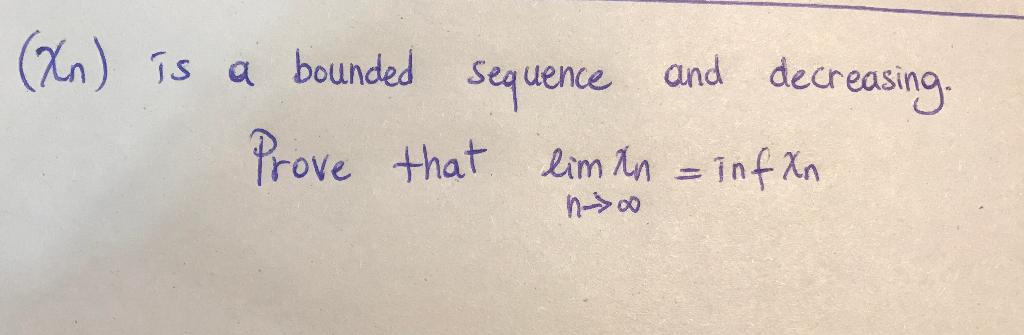 (xn) is a bounded sequence and decreasing.
Prove that lim xn = inf xn
n→∞